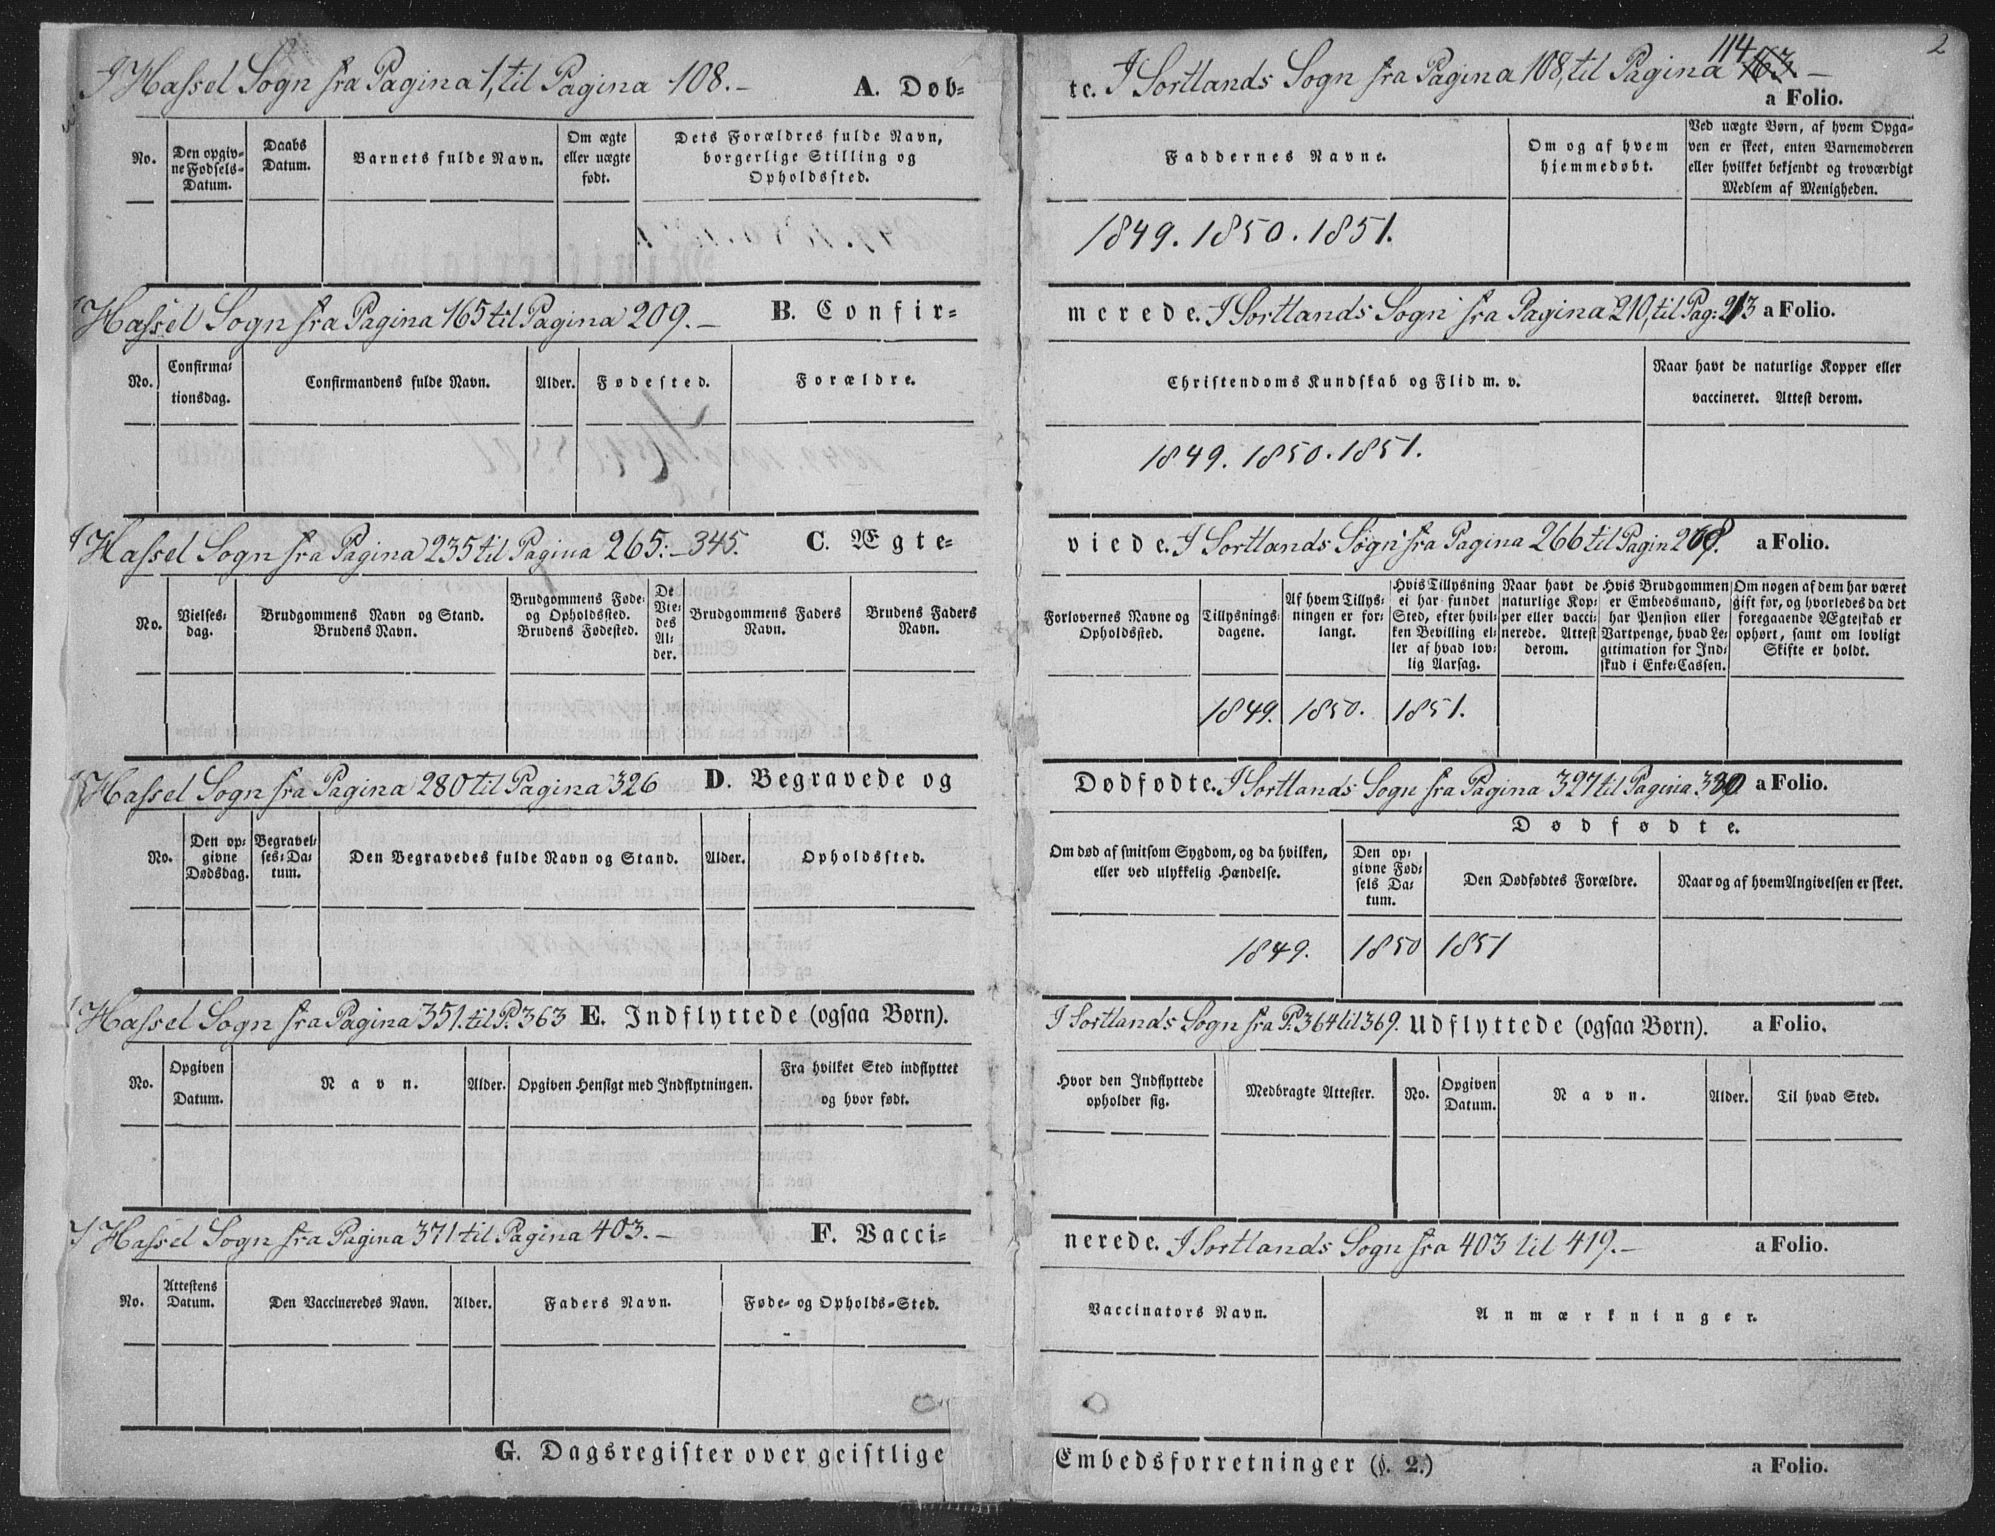 2
I Hassel Sogn fra Pagina 1, til Pagina 108.-
A. Døb-
te. I Sortlands Sogn fra Pagina 108, til Pagina 163 114 -
a Folio.
No.
Den opgiv-
ne Fødsels-
Datum.
Daabs
Datum.
Barnets fulde Navn.
Om ægte
eller uægte
født.
Dets Forældres fulde Navn,
borgerlige Stilling og
Opholdssted.
Faddernes Navne.
Om og af hvem
hjemmedøbt.
Ved uægte Børn, af hvem Opga-
ven er skeet, enten Barnemoderen
eller hvilket bekjendt og troværdigt
Medlem af Menigheden.
1849. 1850. 1851.
I Hassel Sogn fra Pagina 165 til Pagina 209.-
B. Confir-
merede. I Sortlands Sogn fra Pagina 210, til Pag: 213 a Folio.
No.
Confirma-
tionsdag.
Confirmandens fulde Navn.
Alder.
Fødested.
Forældre.
Christendoms Kundskab og Flid m. v.
Naar havt de naturlige Kopper eller
vaccineret. Attest derom.
1849. 1850. 1851.
I Hassel Sogn fra Pagina 235 til Pagina 265:-345.
C. Ægte-
viede. I Sortlands Sogn fra Pagina 266 til Pagin
a Folio.
No.
Vielses-
dag.
Brudgommens Navn og Stand.
Brudens Navn.
Brudgommens Føde-
og Opholdssted.
Brudens Fødested.
De
Vie-
des
Al-
der.
Brudgommens Faders
Navn.
Brudens Faders
Navn.
Forlovernes Navne og
Opholdssted.
Tillysnings-
dagene.
Af hvem Tillys-
ningen er for-
langt.
Hvis Tillysning
ei har fundet
Sted, efter hvil-
ken Bevilling el-
ler af hvad lov-
lig Aarsag.
Naar havt de
naturlige Kop-
per eller vacci-
nerede. Attest
derom.
Hvis Brudgommen
er Embedsmand,
har Pension eller
Vartpenge, hvad Le-
gitimation for Ind-
skud i Enke-Cassen.
Om nogen af dem har været
gift før, og hvorledes da det
foregaaende Ægteskab er
ophørt, samt om lovligt
Skifte er holdt.
1849. 1850. 1851.
I Hassel Sogn fra Pagina 280 til Pagina 326
D. Begravede og
Dødfødte. I Sortlands Sogn fra Pagina 327 til Pagina
a Folio.
No.
Den op-
givne
Dødsdag.
Begravel-
ses-Da-
tum.
Den Begravedes fulde Navn og Stand.
Alder.
Opholdssted.
Om død af smitsom Sygdom, og da hvilken,
eller ved ulykkelig Hændelse.
Dødfødte.
Den op-
givne Fød-
sels Da-
tum.
Den Dødfødtes Forældre.
Naar og af hvem Angivelsen er skeet.
1849. 1850 1851
I Hassel Sogn fra Pagina 351. til P. 363
E. Indflyttede (ogsaa Børn).
I Sortlands Sogn fra P. 364 til 369. Udflyttede (ogsaa Børn).
a Folio.
No.
Opgiven
Datum.
Navn.
Alder.
Opgiven Hensigt med Indflytningen.
Fra hvilket Sted indflyttet
og hvor født.
Hvor den Indflyttede
opholder sig.
Medbragte Attester.
No.
Opgiven
Datum.
Navn.
Alder.
Til hvad Sted.
I Hassel Sogn fra Pagina 371 til Pagina 403.-
F. Vacci-
nerede. I Sortlands Sogn fra 403 til 419.-
a Folio.
No.
Attestens
Datum.
Den Vaccineredes Navn.
Alder.
Faders Navn.
Føde- og Opholds-Sted.
Vaccinators Navn.
Anmærkninger.
G. Dagsregister over geistlige
Embedsforretninger (§. 2.)
a Folio.